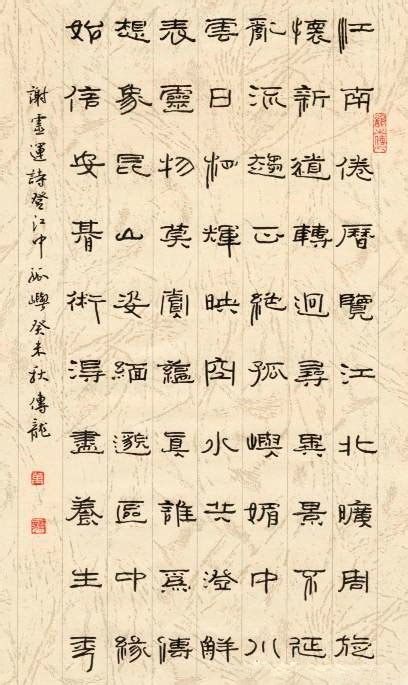 江南倦曆覽江北曠周旋
懷新道轉迥尋異景不延
亂流趨正絕孤嶼媚中川
雲日相輝映空水共澄鮮
表靈物莫賞蘊真誰為傳
想象昆山姿緬邈區中緣
始信安期術得盡養生年
謝靈運詩登江中孤嶼癸未秋傳龍